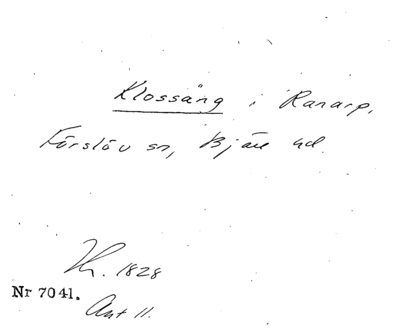 Klossäng i Ranarp,
Förslöv sn, Bjäre hd.
Kr. 1828
Nr 7041.
Ant 11.